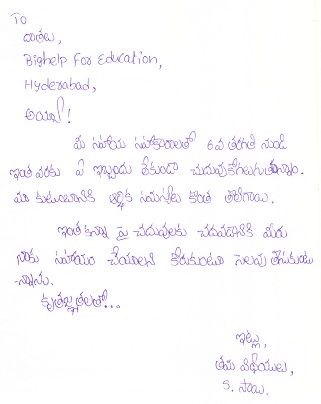 To
దాతలు,
Bighelp For Education,
Hyderabad,
అయ్యా!
మీ సహాయ సహకారాలతో 6వ తరగతి నుండి
ఇంత వరకు ఏ ఇబ్బందు లేకుండా చదువుకోగలుగుతున్నాం.
మా కుటుంబానికి ఆర్థిక సమస్యలు కొంత తొలిగాయి.
ఇంత కన్నా పై చదువులకు చదవడానికి మీరు
నాకు సహాయం చేయాలని కోరుకుంటూ సెలవు తీసుకుంటు
-న్నాను.
కృతజ్ఞతలతో...
ఇట్లు,
తమ విధేయులు,
S. సాయి.